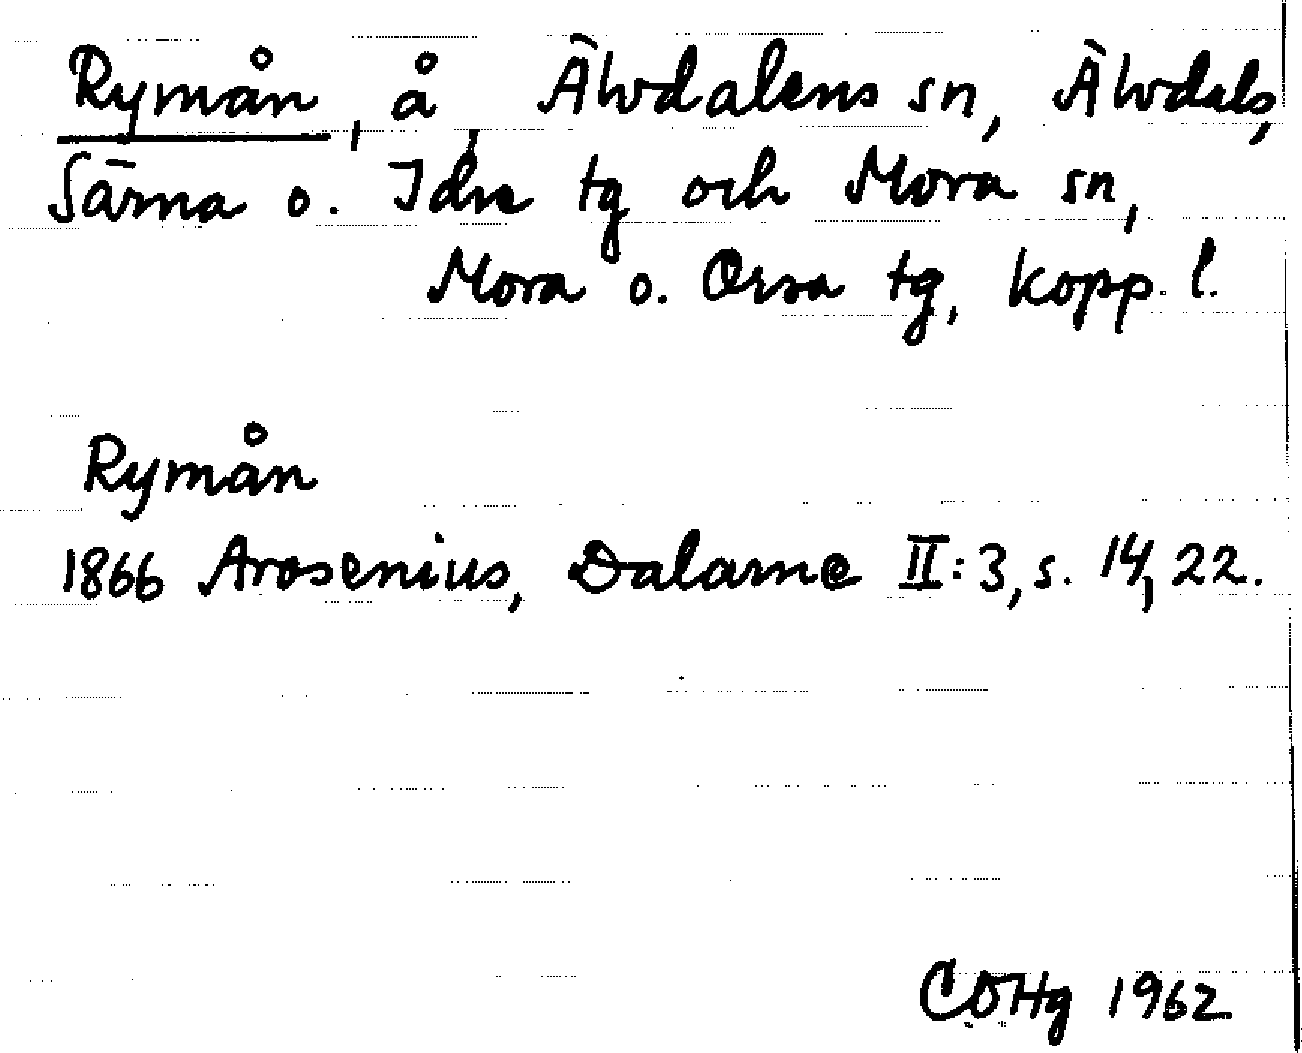 Rymån, å, Älvdalens sn, Älvdals,
Särna o. Idre tg och Mora sn,
Mora o. Orsa tg, Kopp. l.
Rymån
1866 Arosenius, Dalarne II:3, s. 14, 22.
COHg 1962